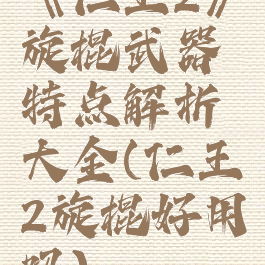 《仁王2》
旋棍武器
特点解析
大全(仁王
2旋棍好用
吗)